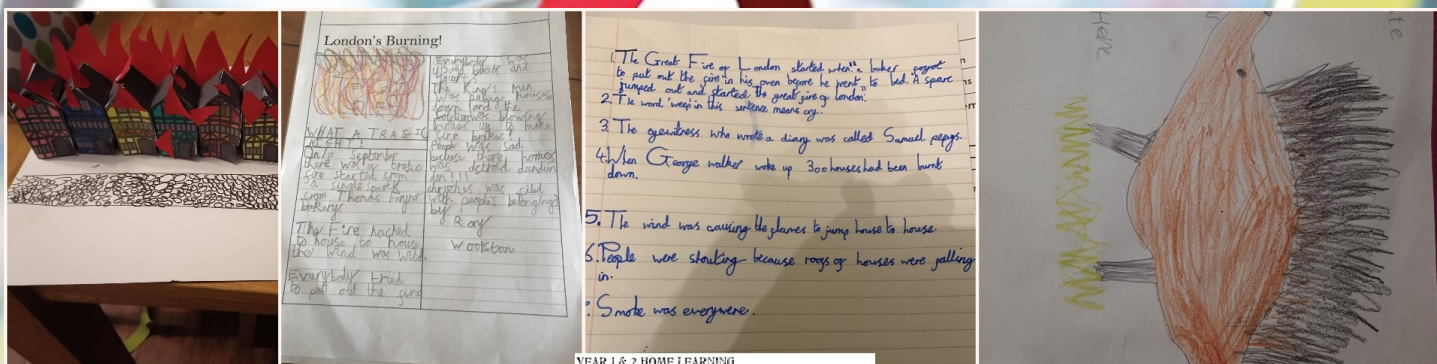 London's Burning!
WHAT A TRAGIC
NIGHT!
On 1st September
there was a tragic
fire started from
a single spark
from Tomas
bakery.
The Fire
to house to house
the wind was wild.
Everybody tried
to put out the fire
Everybody was
using boats and
The King's men
was puling houses
down and the
was blowing
houses up to make
fire brakes!
People was sad
because there homes
was
churches was
with people's belongings
by
Rory
1. The Great Fire of London started when a baker forgot
to put out the fire in his oven before he went to bed. A spare
jumped out and started the great fire of london.
2. The word 'weep' in this sentence means cry.
3. The eyewitness who wrote a diary was called Samuel pepys.
4. When George walker woke up 300 houses had been burnt
down.
5. The wind was causing the flames to jump house to house.
6. People were shouting because roofs of houses were falling
in.
Smoke was everywere.
YEAR 1 & 2 HOME LEARNING